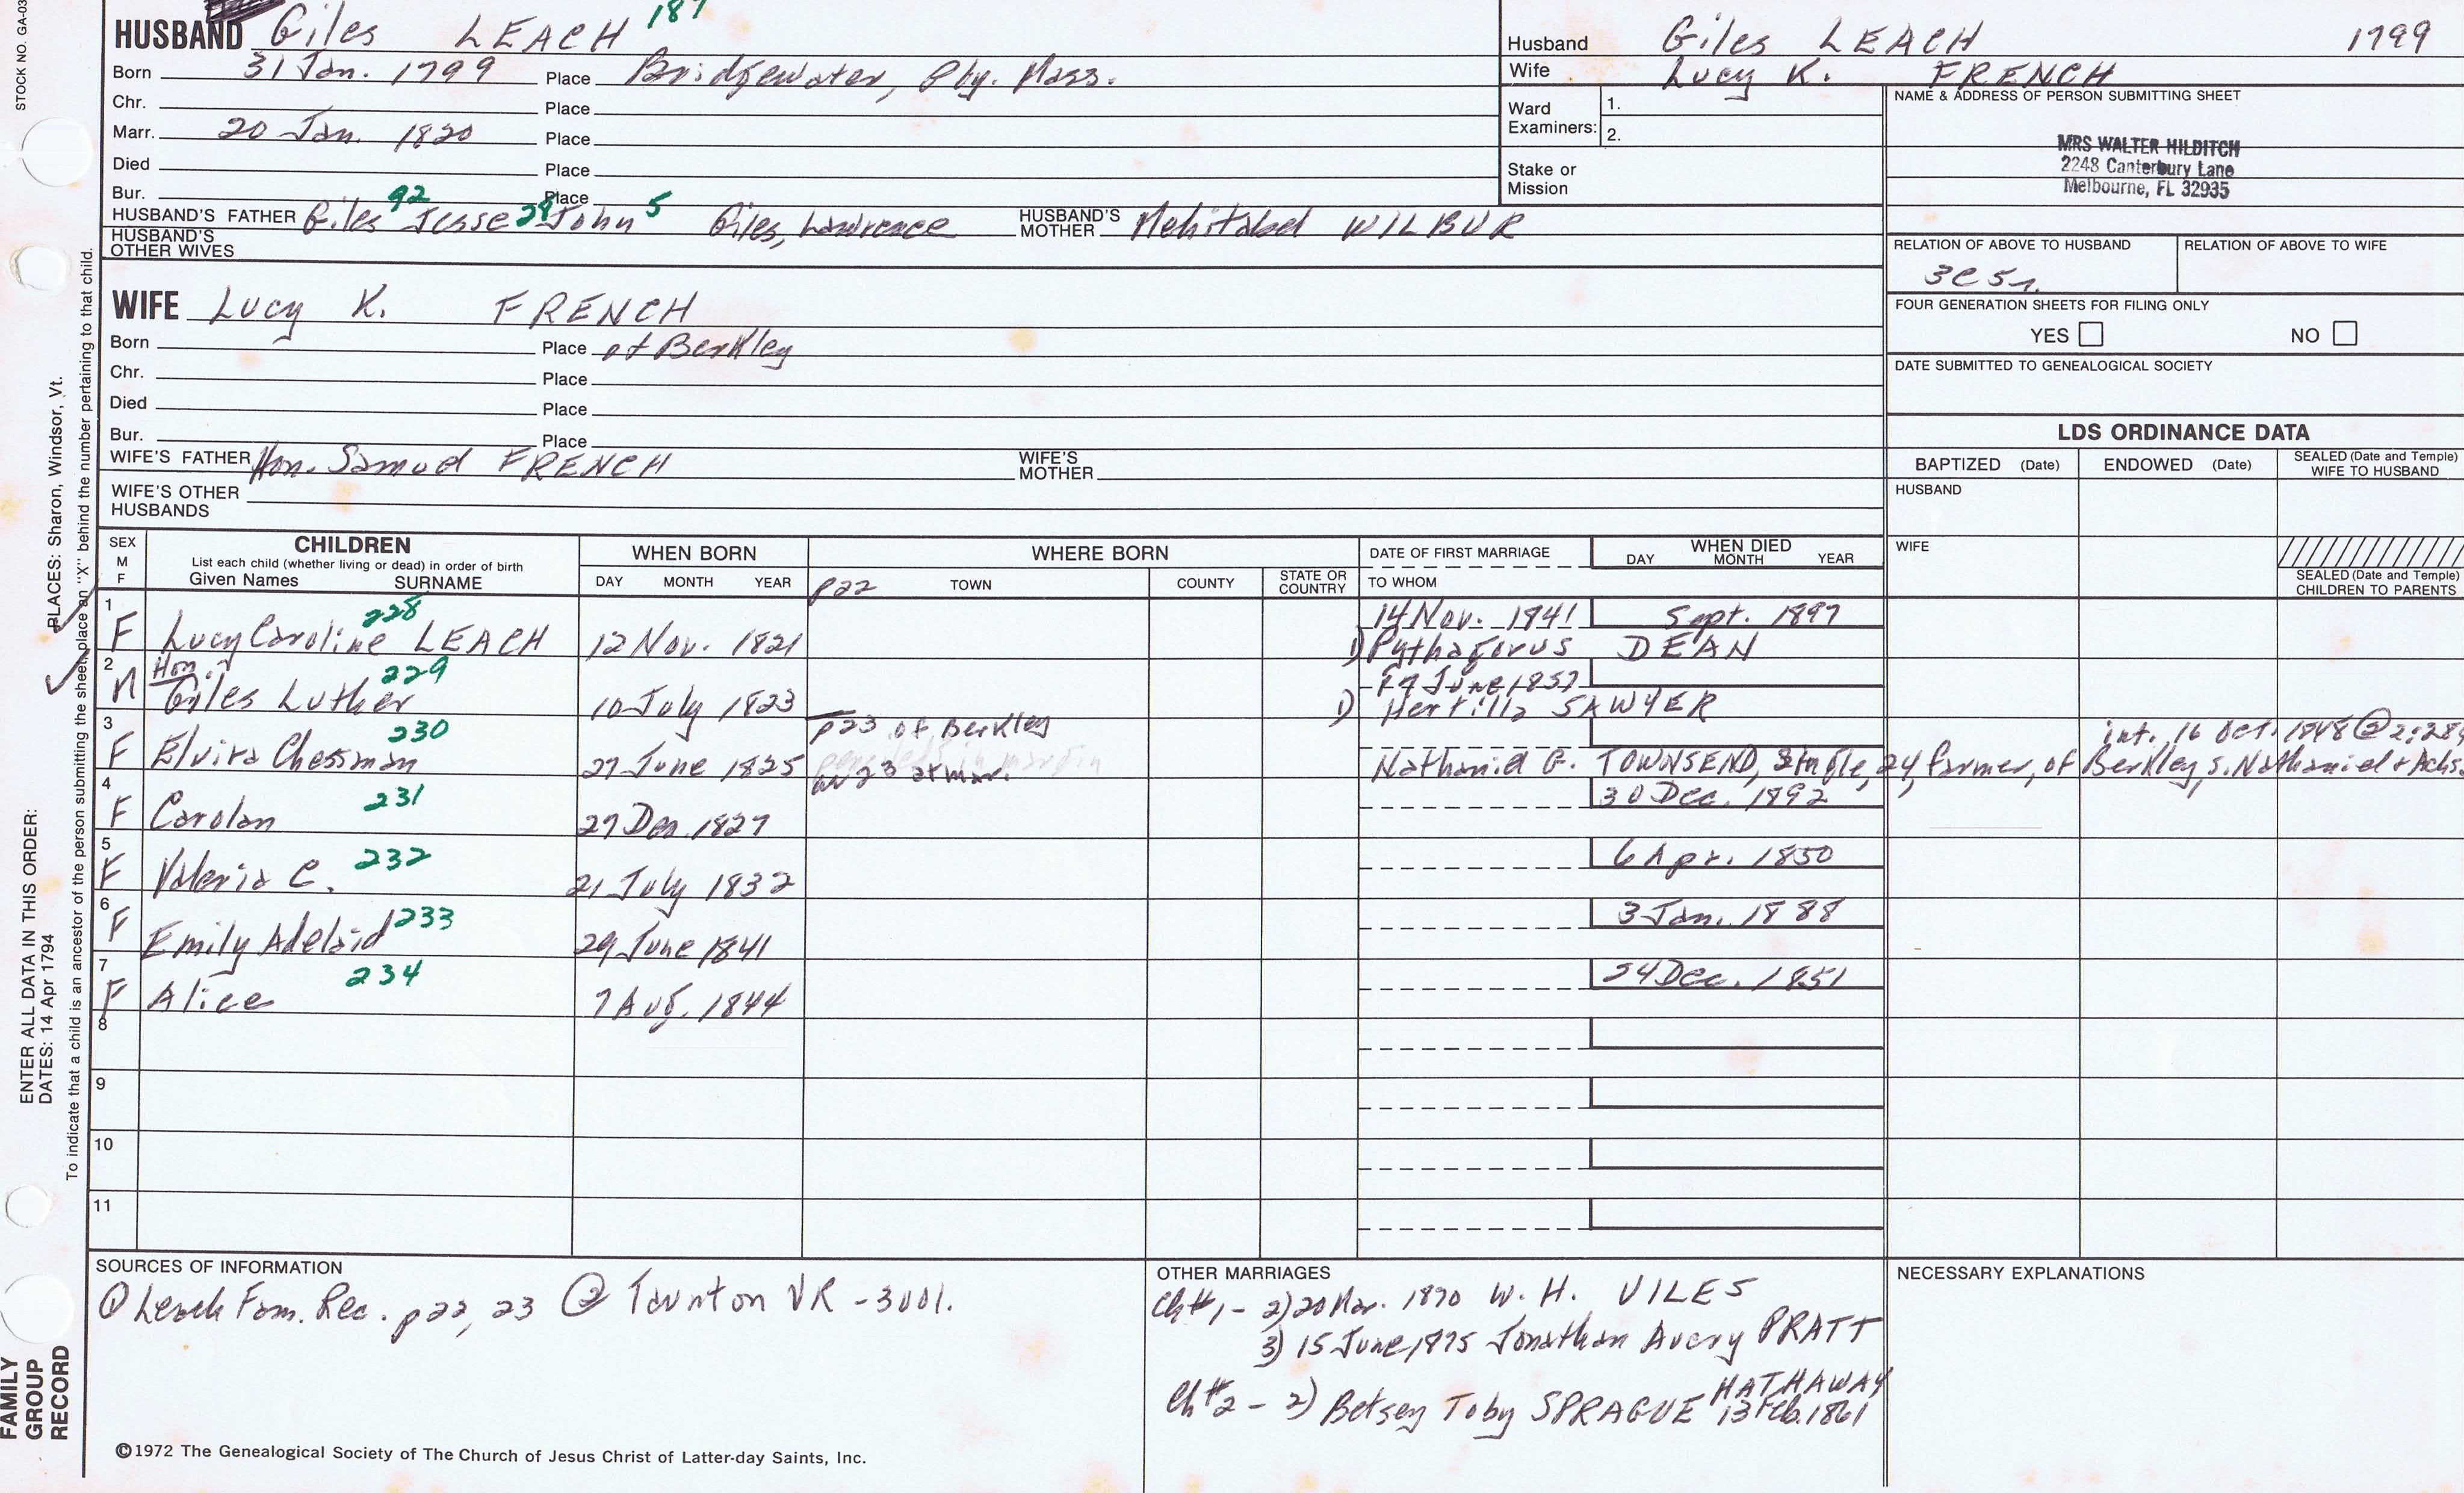 STOCK NO. GA-03
HUSBAND Giles LEACH 187
Born 31 Jan. 1799 Place Bridgewater, Ply. Mass.
Chr. Place
Marr. 20 Jan. 1820 Place
Died Place
Bur. Place
HUSBAND'S FATHER Giles 92 Jesse 28 John 5 Giles, Lawrence HUSBAND'S MOTHER Mehitabel WILBUR
HUSBAND'S OTHER WIVES
Husband Giles LEACH 1799
Wife Lucy K. FRENCH
Ward Examiners: 1.
2.
Stake or Mission
NAME & ADDRESS OF PERSON SUBMITTING SHEET
MRS WALTER HILDITCH
2248 Canterbury Lane
Melbourne, FL 32935
RELATION OF ABOVE TO HUSBAND RELATION OF ABOVE TO WIFE
3C5r.
FOUR GENERATION SHEETS FOR FILING ONLY
YES NO
DATE SUBMITTED TO GENEALOGICAL SOCIETY
WIFE Lucy K. FRENCH
Born Place of Berkley
Chr. Place
Died Place
Bur. Place
WIFE'S FATHER Hon. Samuel FRENCH WIFE'S MOTHER
WIFE'S OTHER HUSBANDS
LDS ORDINANCE DATA
BAPTIZED (Date) ENDOWED (Date) SEALED (Date and Temple) WIFE TO HUSBAND
HUSBAND
WIFE
SEALED (Date and Temple) CHILDREN TO PARENTS
SEX M F
CHILDREN
List each child (whether living or dead) in order of birth
Given Names SURNAME
WHEN BORN
DAY MONTH YEAR
WHERE BORN
p22 TOWN COUNTY STATE OR COUNTRY
DATE OF FIRST MARRIAGE
TO WHOM
WHEN DIED
DAY MONTH YEAR
1 F Lucy Caroline LEACH 228 12 Nov. 1821 14 Nov. 1841 Sept. 1897
1) Pythagorus DEAN
2 M Hon. Giles Luther 229 10 July 1823 June 1852
1) Hertilla SAWYER
3 F Elvira Chessman 230 27 June 1825 p23 of Berkley
23 at mar.
int. 16 Oct. 1848 @ 2:28
Nathaniel G. TOWNSEND, single, 24, farmer, of Berkley, s. Nathaniel + Achs.
4 F Carolan 231 27 Dec. 1827 30 Dec. 1892
5 F Valeria C. 232 21 July 1832 6 Apr. 1850
6 F Emily Adelaid 233 29 June 1841 3 Jan. 1888
7 F Alice 234 7 Aug. 1844 24 Dec. 1851
8
9
10
11
SOURCES OF INFORMATION
① Leach Fam. Rec. p22, 23 ② Taunton VR - 3vol.
OTHER MARRIAGES
Ch #1 - 2) 20 Mar. 1870 W. H. VILES
3) 15 June 1875 Jonathan Avery PRATT
Ch #2 - 2) Betsey Toby SPRAGUE HATHAWAY
13 Feb. 1861
NECESSARY EXPLANATIONS
©1972 The Genealogical Society of The Church of Jesus Christ of Latter-day Saints, Inc.
FAMILY GROUP RECORD
ENTER ALL DATA IN THIS ORDER:
DATES: 14 Apr 1794
PLACES: Sharon, Windsor, Vt.
To indicate that a child is an ancestor of the person submitting the sheet, place an "X" behind the number pertaining to that child.